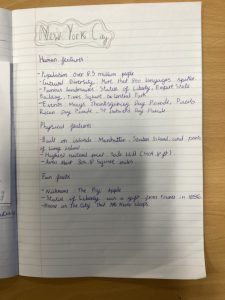 New York City
Human features
- Population over 8.3 million people
- Cultural Diversity. More that 800 languages spoken
- Famous landmarks: Statue of Liberty, Empire State
Building, Times Square, Central Park
- Events: Macys Thanksgiving Day Parade, Puerto
Rican Day Parade, St Patricks Day Parade
Physical features
- Built on islands: Manhattan, Staten Island, and parts
of Long Island
- Highest natural point: Todt Hill
- Area: About 302.6 square miles
Fun facts
- Nickname: The Big Apple
- Statue of Liberty was a gift from France in 1886
- Known as the City that Never Sleeps.